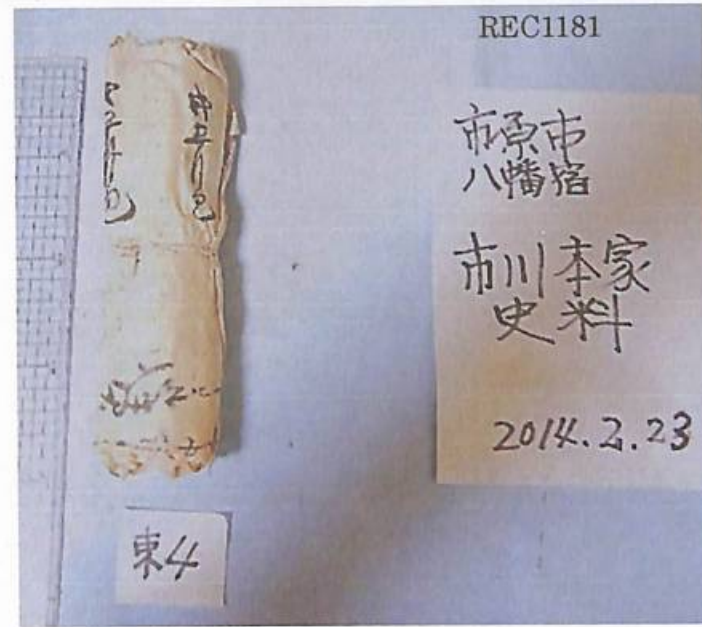 REC1181
市原市
八幡宿
市川本家
史料
2014.2.23
東4